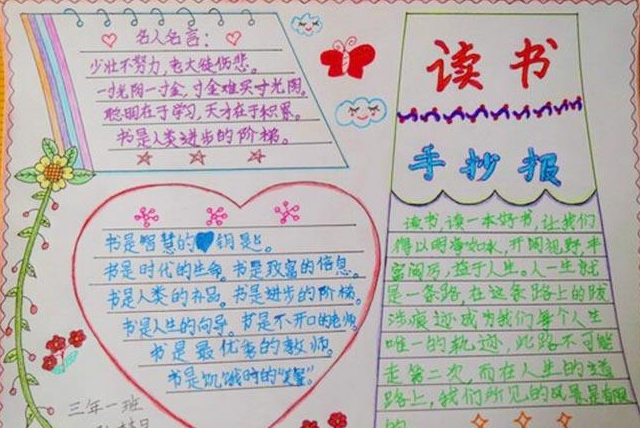 名人名言：
少壮不努力，老大徒伤悲。
一寸光阴一寸金，寸金难买寸光阴。
聪明在于学习，天才在于积累。
书是人类进步的阶梯。
读书
手抄报
书是智慧的钥匙。
书是时代的生命。书是致富的信息。
书是人类的补品。书是进步的阶梯。
书是人生的向导。书是不开口的老师。
书是最优秀的教师。
书是饥饿时的"美餐"。
三年一班
读书，读一本好书，让我们
得以明净如水，开阔视野，丰
富阅历，益于人生。人一生就
是一条路，在这条路上的跋
涉痕迹成为我们每个人生
唯一的轨迹，此路不可能
走第二次，而在人生的道
路上，我们所见的风景是有限
的